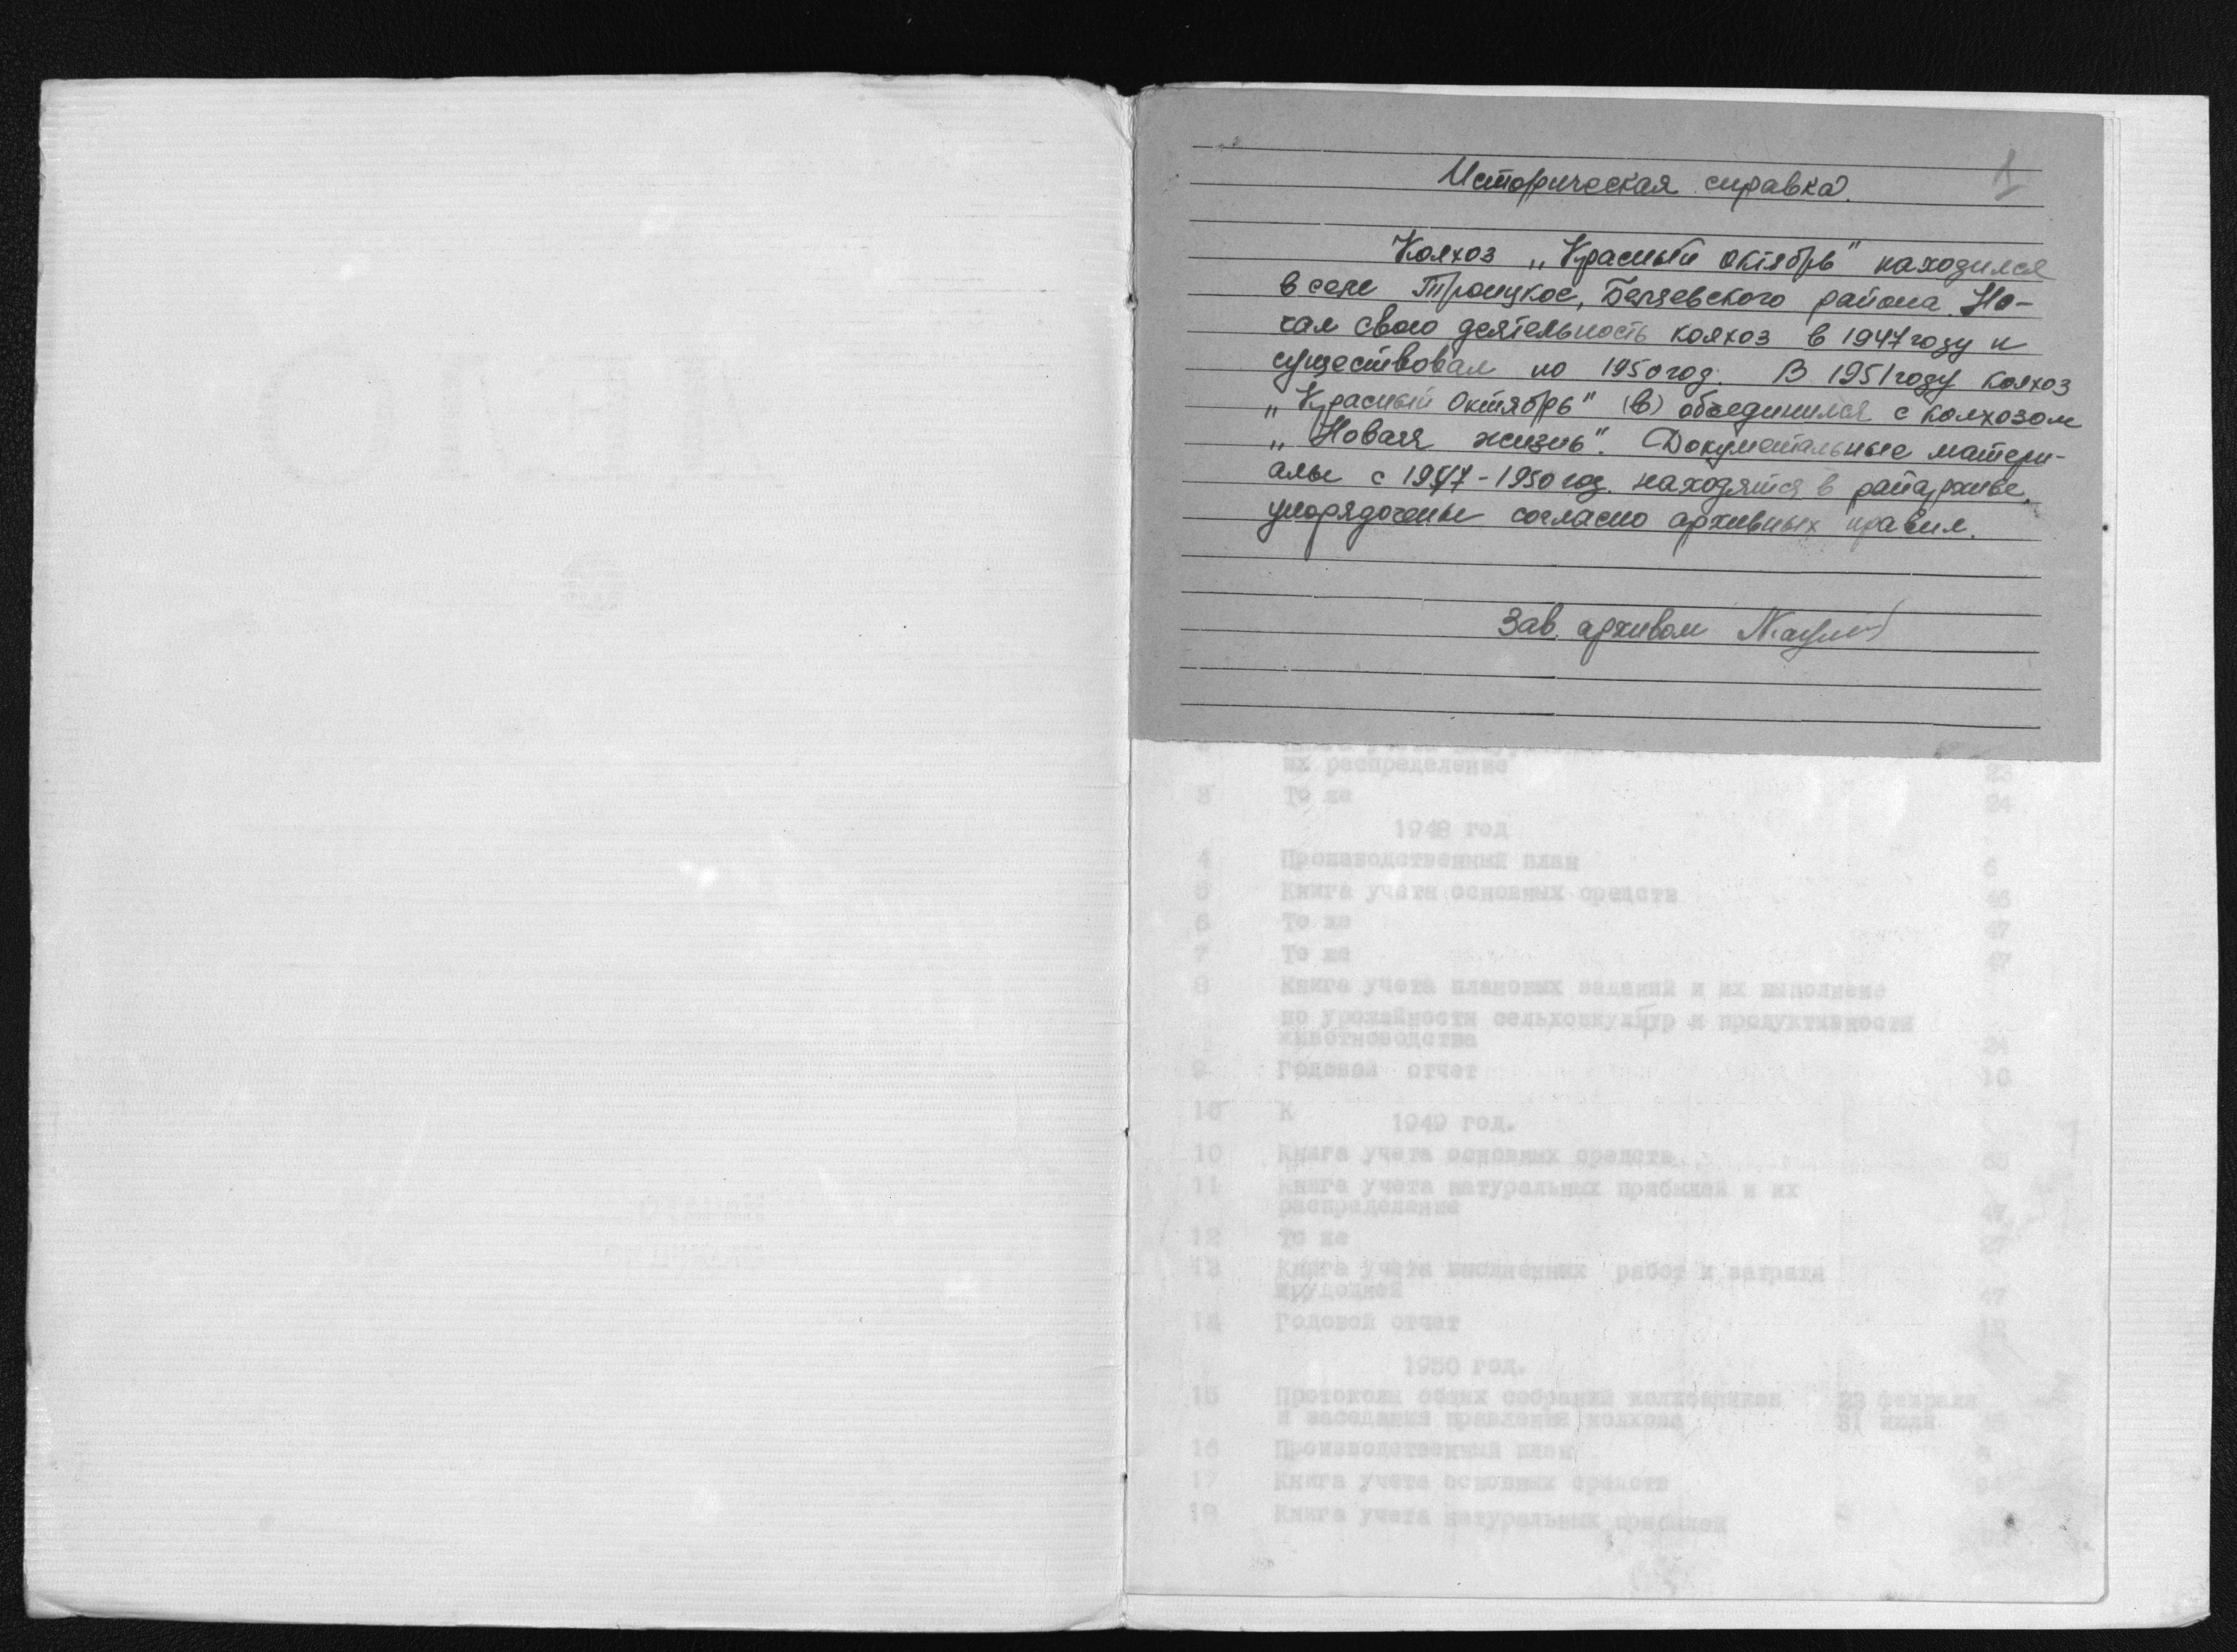 1
Историческая справка.
Колхоз „Красный октябрь" находился
в селе Троицкое, Беляевского района. На-
чал свою деятельность колхоз в 1947 году и
существовал по 1950 год. В 1951 году колхоз
„Красный Октябрь" (в) объединился с колхозом
„Новая жизнь". Документальные матери-
алы с 1947-1950 год. находятся в райархиве,
упорядочены согласно архивных правил.
Зав. архивом
их распределение 23
3 То же 24
1948 год
4 Производственный план 6
5 Книга учета основных средств 46
6 То же 47
7 То же 47
8 Книга учета плановых заданий и их выполнене
по урожайности сельхозкультур и продуктивности
животноводства 24
9 Годовой отчет 16
10 К
1949 год.
10 Книга учета основных средств
11 Книга учета натуральных прибылей и их
распределение 47
12 То же 27
13 Книга учета выолненных работ и затрат
трудодней 47
14 Годовой отчет 12
1950 год.
15 Протоколы общих собраний колхозников 23 февраля
и заседания правления колхоза 31 июля
16 Производственный план
17 Книга учета основных средств
18 Книга учета натуральных прибылей